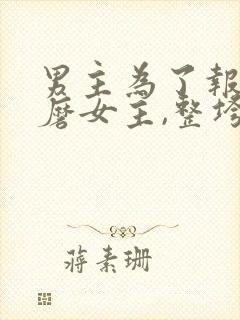 男主為了報
磨女主,整垮
蔣素珊